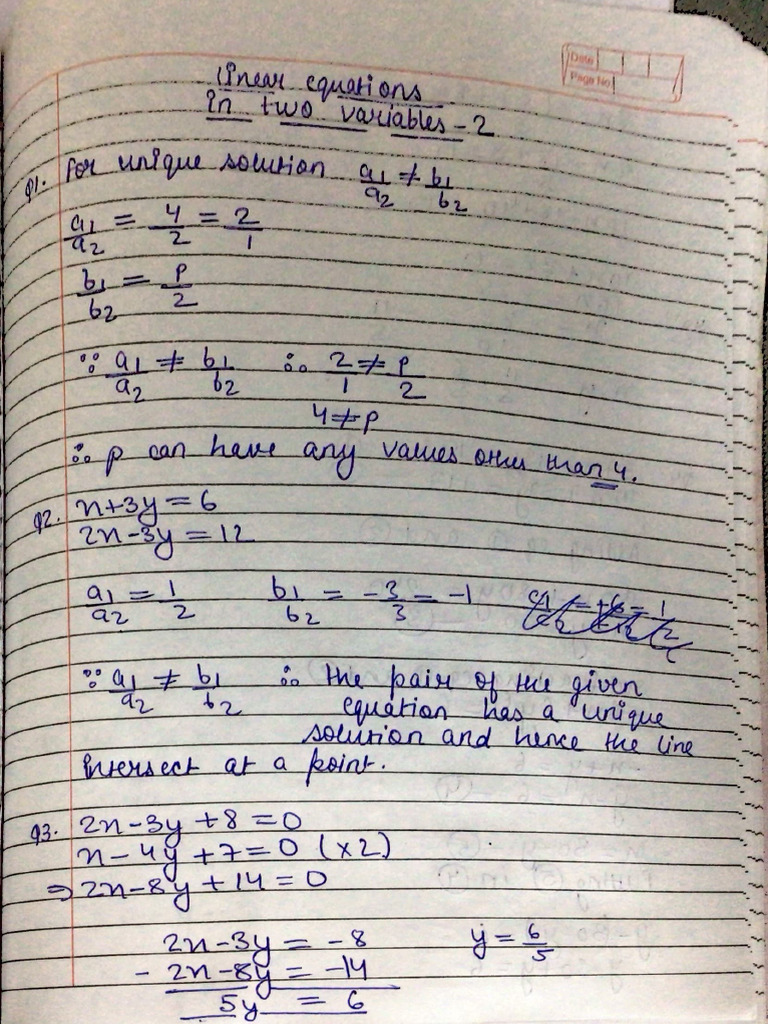 Date
Page No
linear equations
in two variables - 2
Q1. For unique solution a1/a2 ≠ b1/b2
a1/a2 = 4/2 = 2/1
b1/b2 = P/2
∵ a1/a2 ≠ b1/b2 ∴ 2/1 ≠ P/2
4 ≠ p
∴ p can have any values other than 4.
Q2. x+3y = 6
2x-3y = 12
a1/a2 = 1/2 b1/b2 = -3/3 = -1
∵ a1/a2 ≠ b1/b2 ∴ the pair of the given
equation has a unique
solution and hence the line
intersect at a point.
Q3. 2x-3y+8 = 0
x-4y+7 = 0 (x2)
⇒ 2x-8y+14 = 0
2x-3y = -8 y = 6/5
- 2x-8y = -14
5y = 6